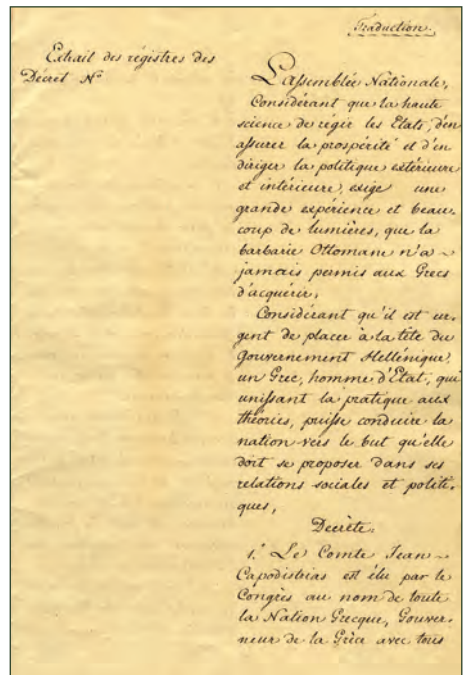 Traduction.
Extrait des régistres des
Décret Nº
L'Assemblée Nationale,
Considérant que la haute
science de régir les Etats, d'en
assurer la prospérité et d'en
diriger la politique extérieure
et intérieure, exige une
grande expérience et beau-
coup de lumières, que la
barbarie Ottomane n'a
jamais permis aux Grecs
d'acquérir,
Considérant qu'il est ur-
gent de placer à la tête du
Gouvernement Hellénique,
un Grec, homme d'Etat, qui
unissant la pratique aux
théories, puisse conduire la
nation vers le but qu'elle
doit se proposer dans ses
relations sociales et politi-
ques,
Decrète:
1.º Le Comte Jean
Capodistrias est élu par le
Congrès au nom de toute
la Nation Grecque, Gouver-
neur de la Grèce avec tous